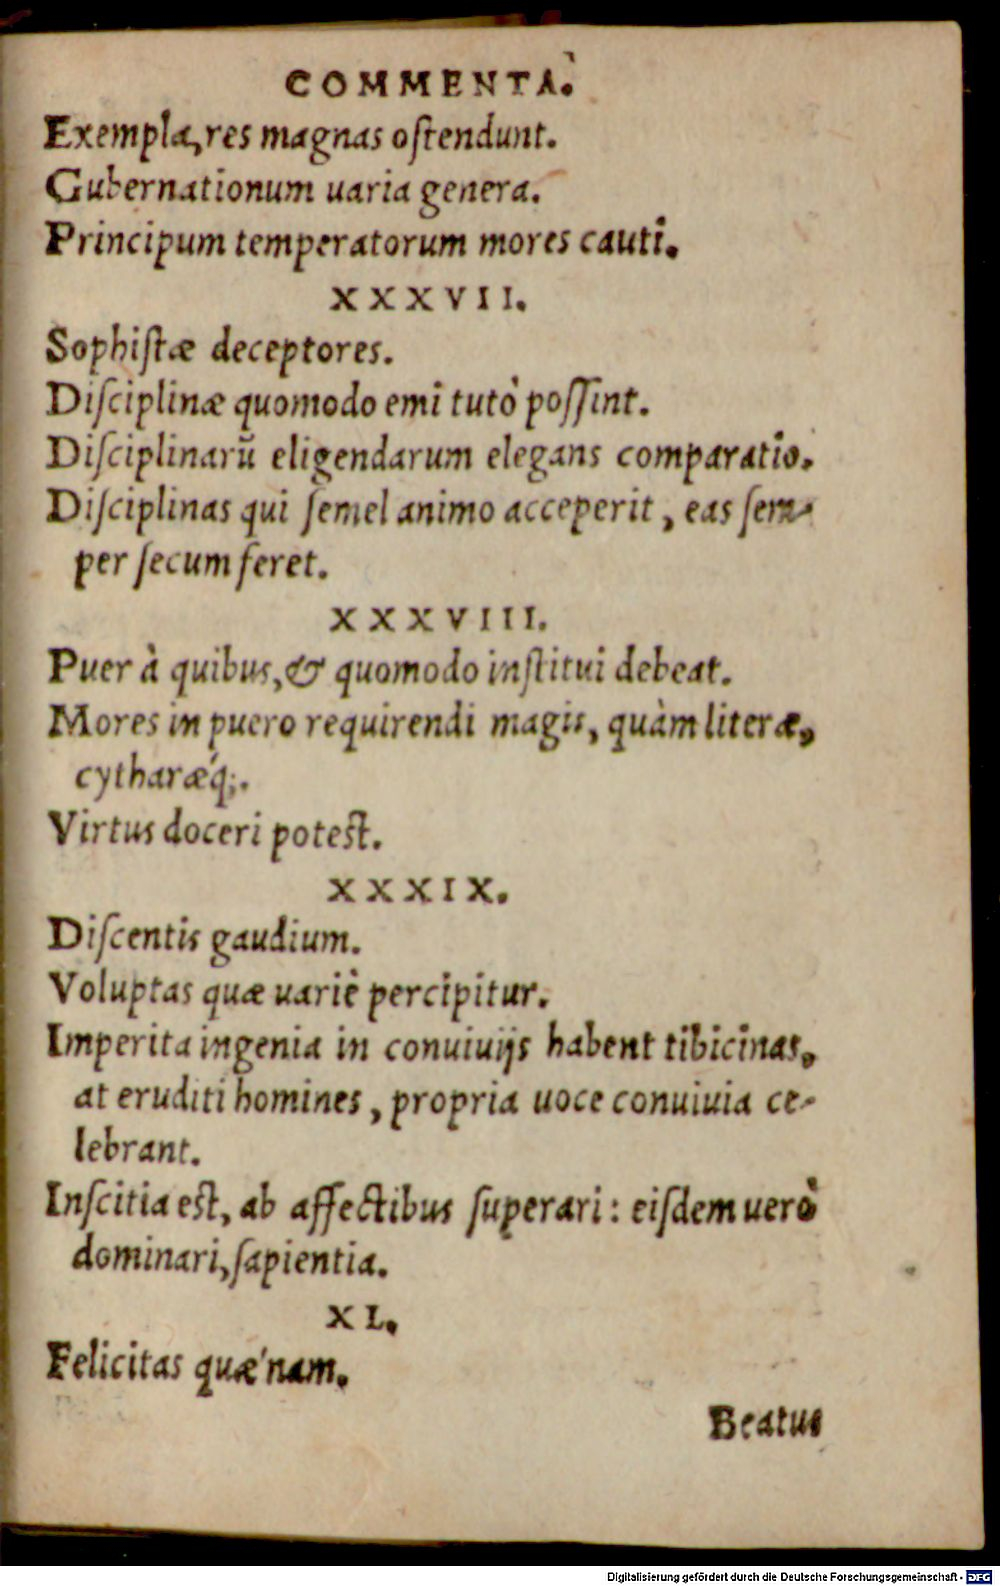 COMMENTA.
Exempla, res magnas oſtendunt.
Gubernationum uaria genera.
Principum temperatorum mores cauti.
XXXVII.
Sophiſtæ deceptores.
Diſciplinæ quomodo emi tutò poſſint.
Diſciplinarũ eligendarum elegans comparatio.
Diſciplinas qui ſemel animo acceperit, eas ſem-
per ſecum feret.
XXXVIII.
Puer à quibus, & quomodo inſtitui debeat.
Mores in puero requirendi magis, quàm literæ,
cytharæq́;.
Virtus doceri poteſt.
XXXIX.
Diſcentis gaudium.
Voluptas quæ uariè percipitur.
Imperita ingenia in conuiuijs habent tibicinas,
at eruditi homines, propria uoce conuiuia ce-
lebrant.
Inſcitia eſt, ab affectibus ſuperari: eiſdem uerò
dominari, ſapientia.
XL.
Felicitas quæ'nam.
Beatus
Digitalisierung gefördert durch die Deutsche Forschungsgemeinschaft - DFG